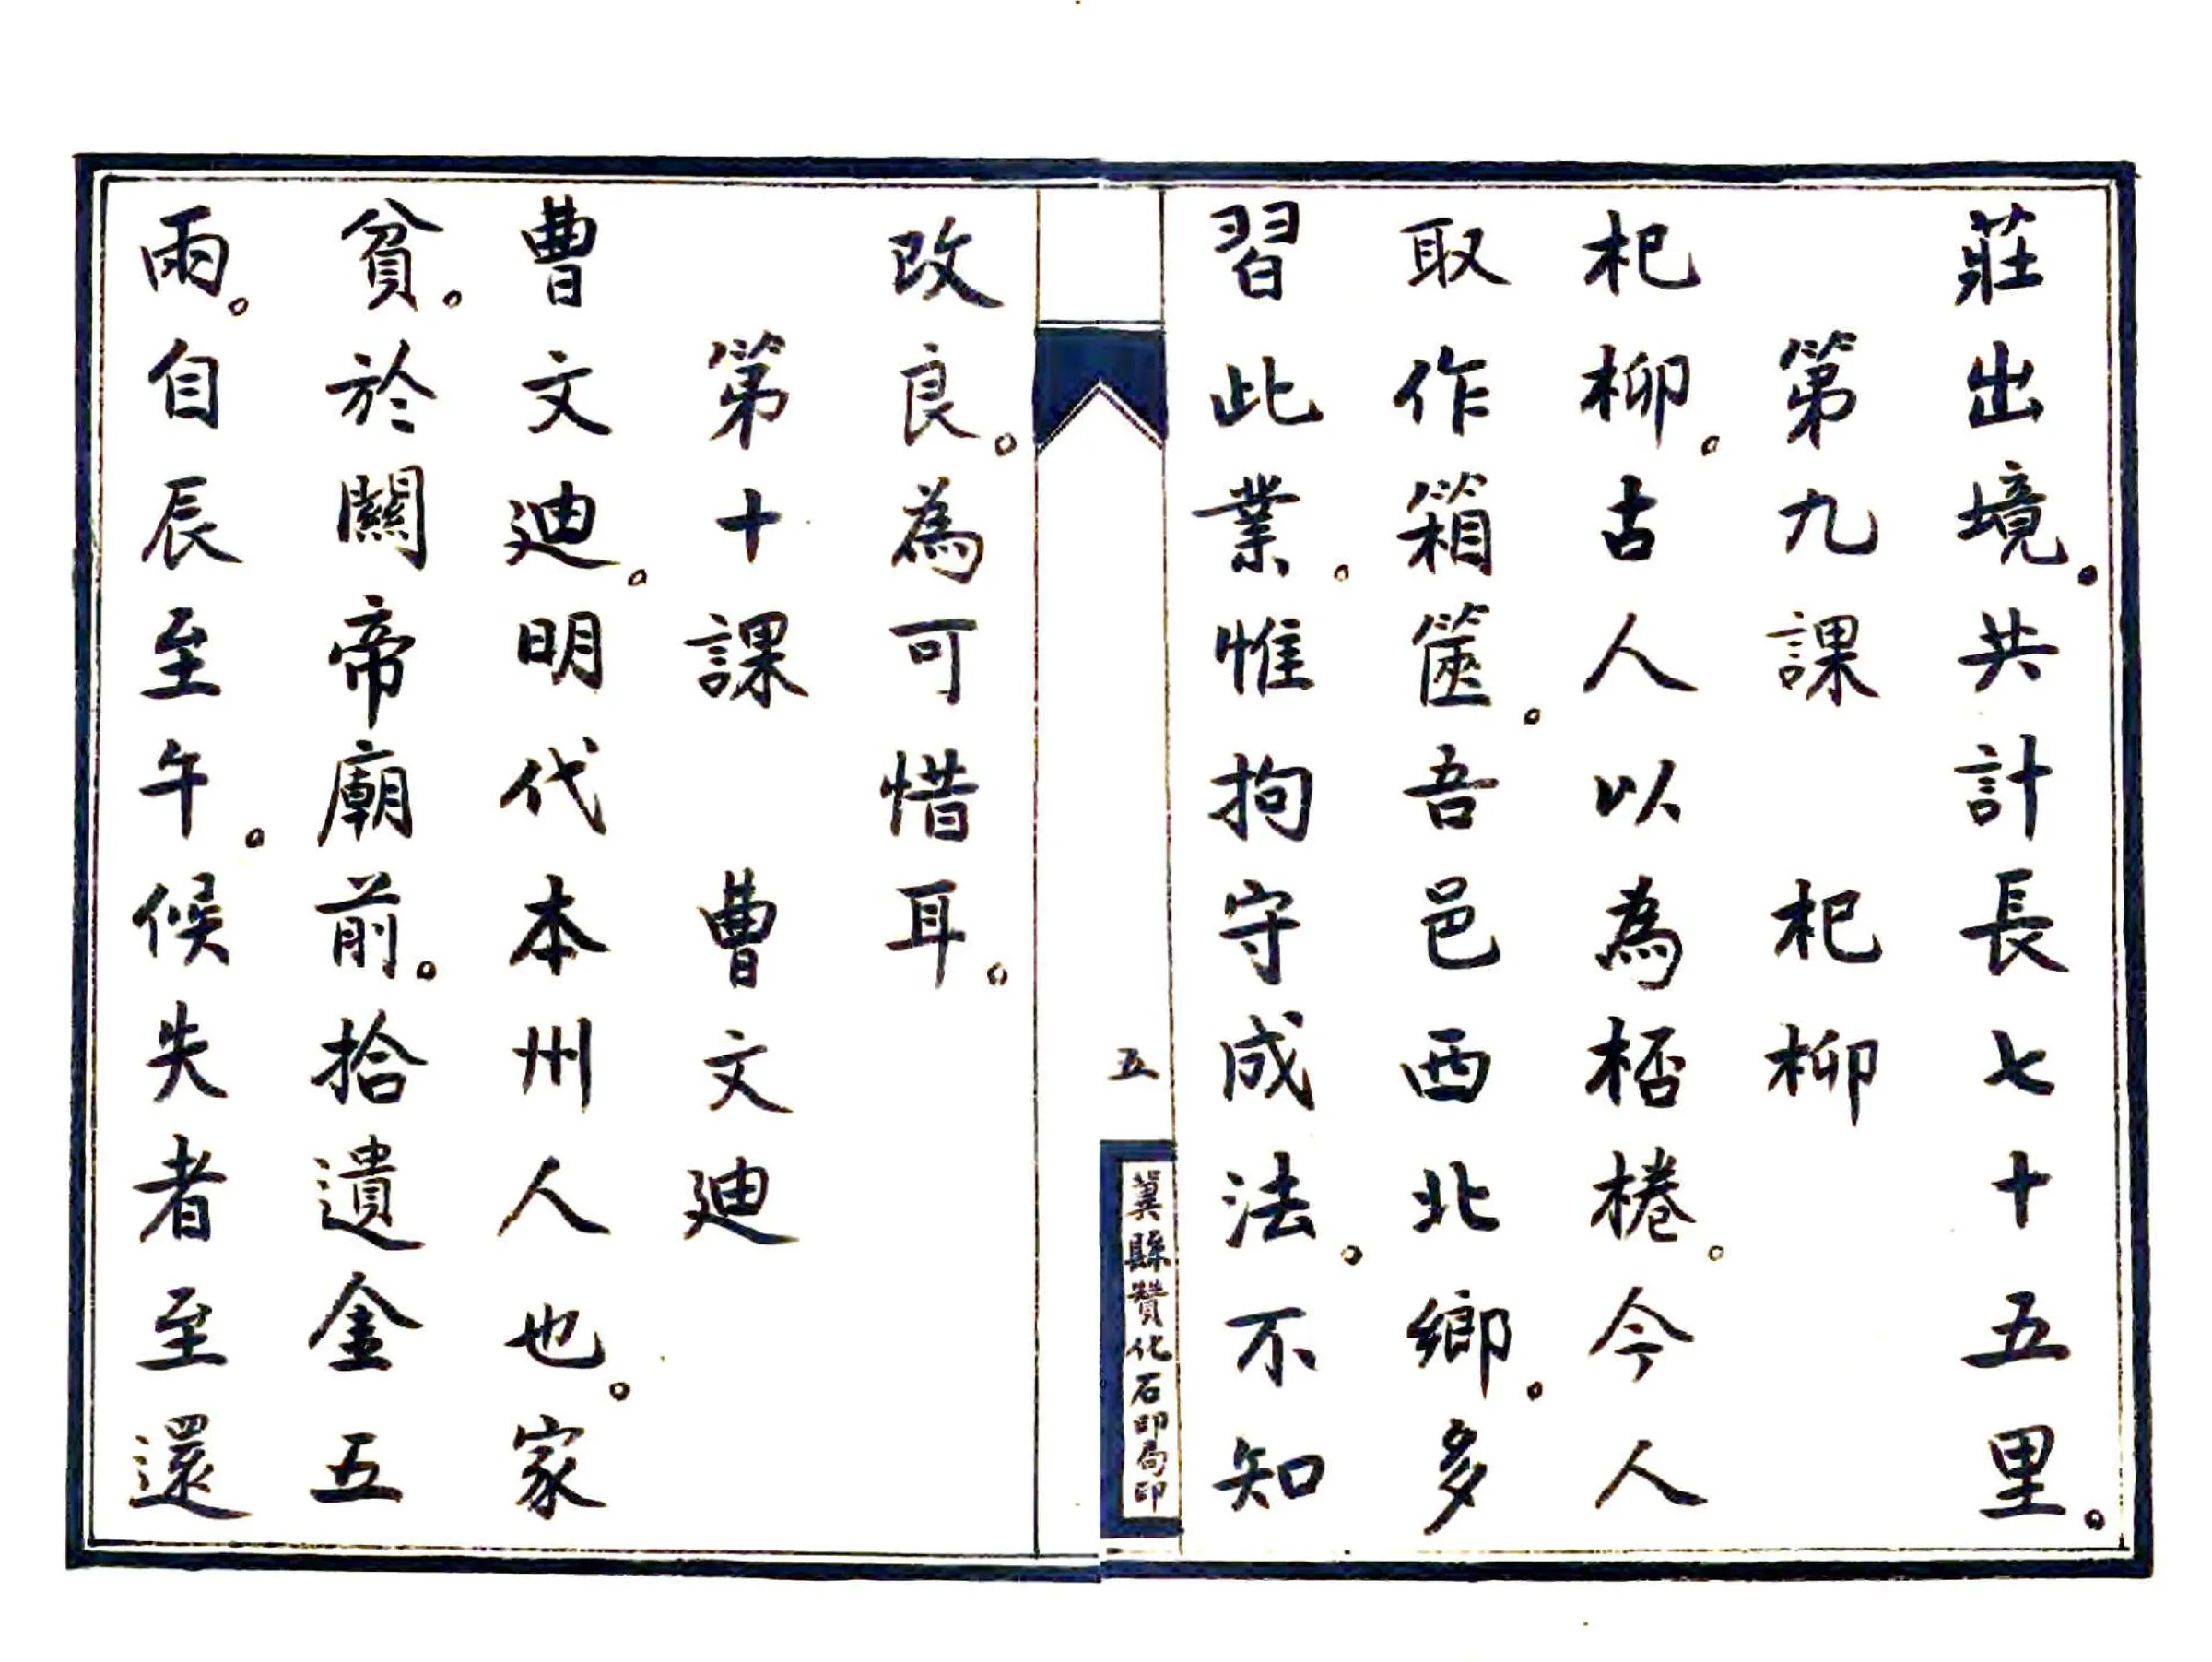 莊出境。共計長七十五里。
第九課　杞柳
杞柳。古人以為桮棬。今人
取作箱篋。吾邑西北鄉。多
習此業。惟拘守成法。不知
五
冀縣贊化石印局印
改良。為可惜耳。
第十課　曹文迪
曹文迪。明代本州人也。家
貧。於關帝廟前。拾遺金五
兩。自辰至午。候失者至還